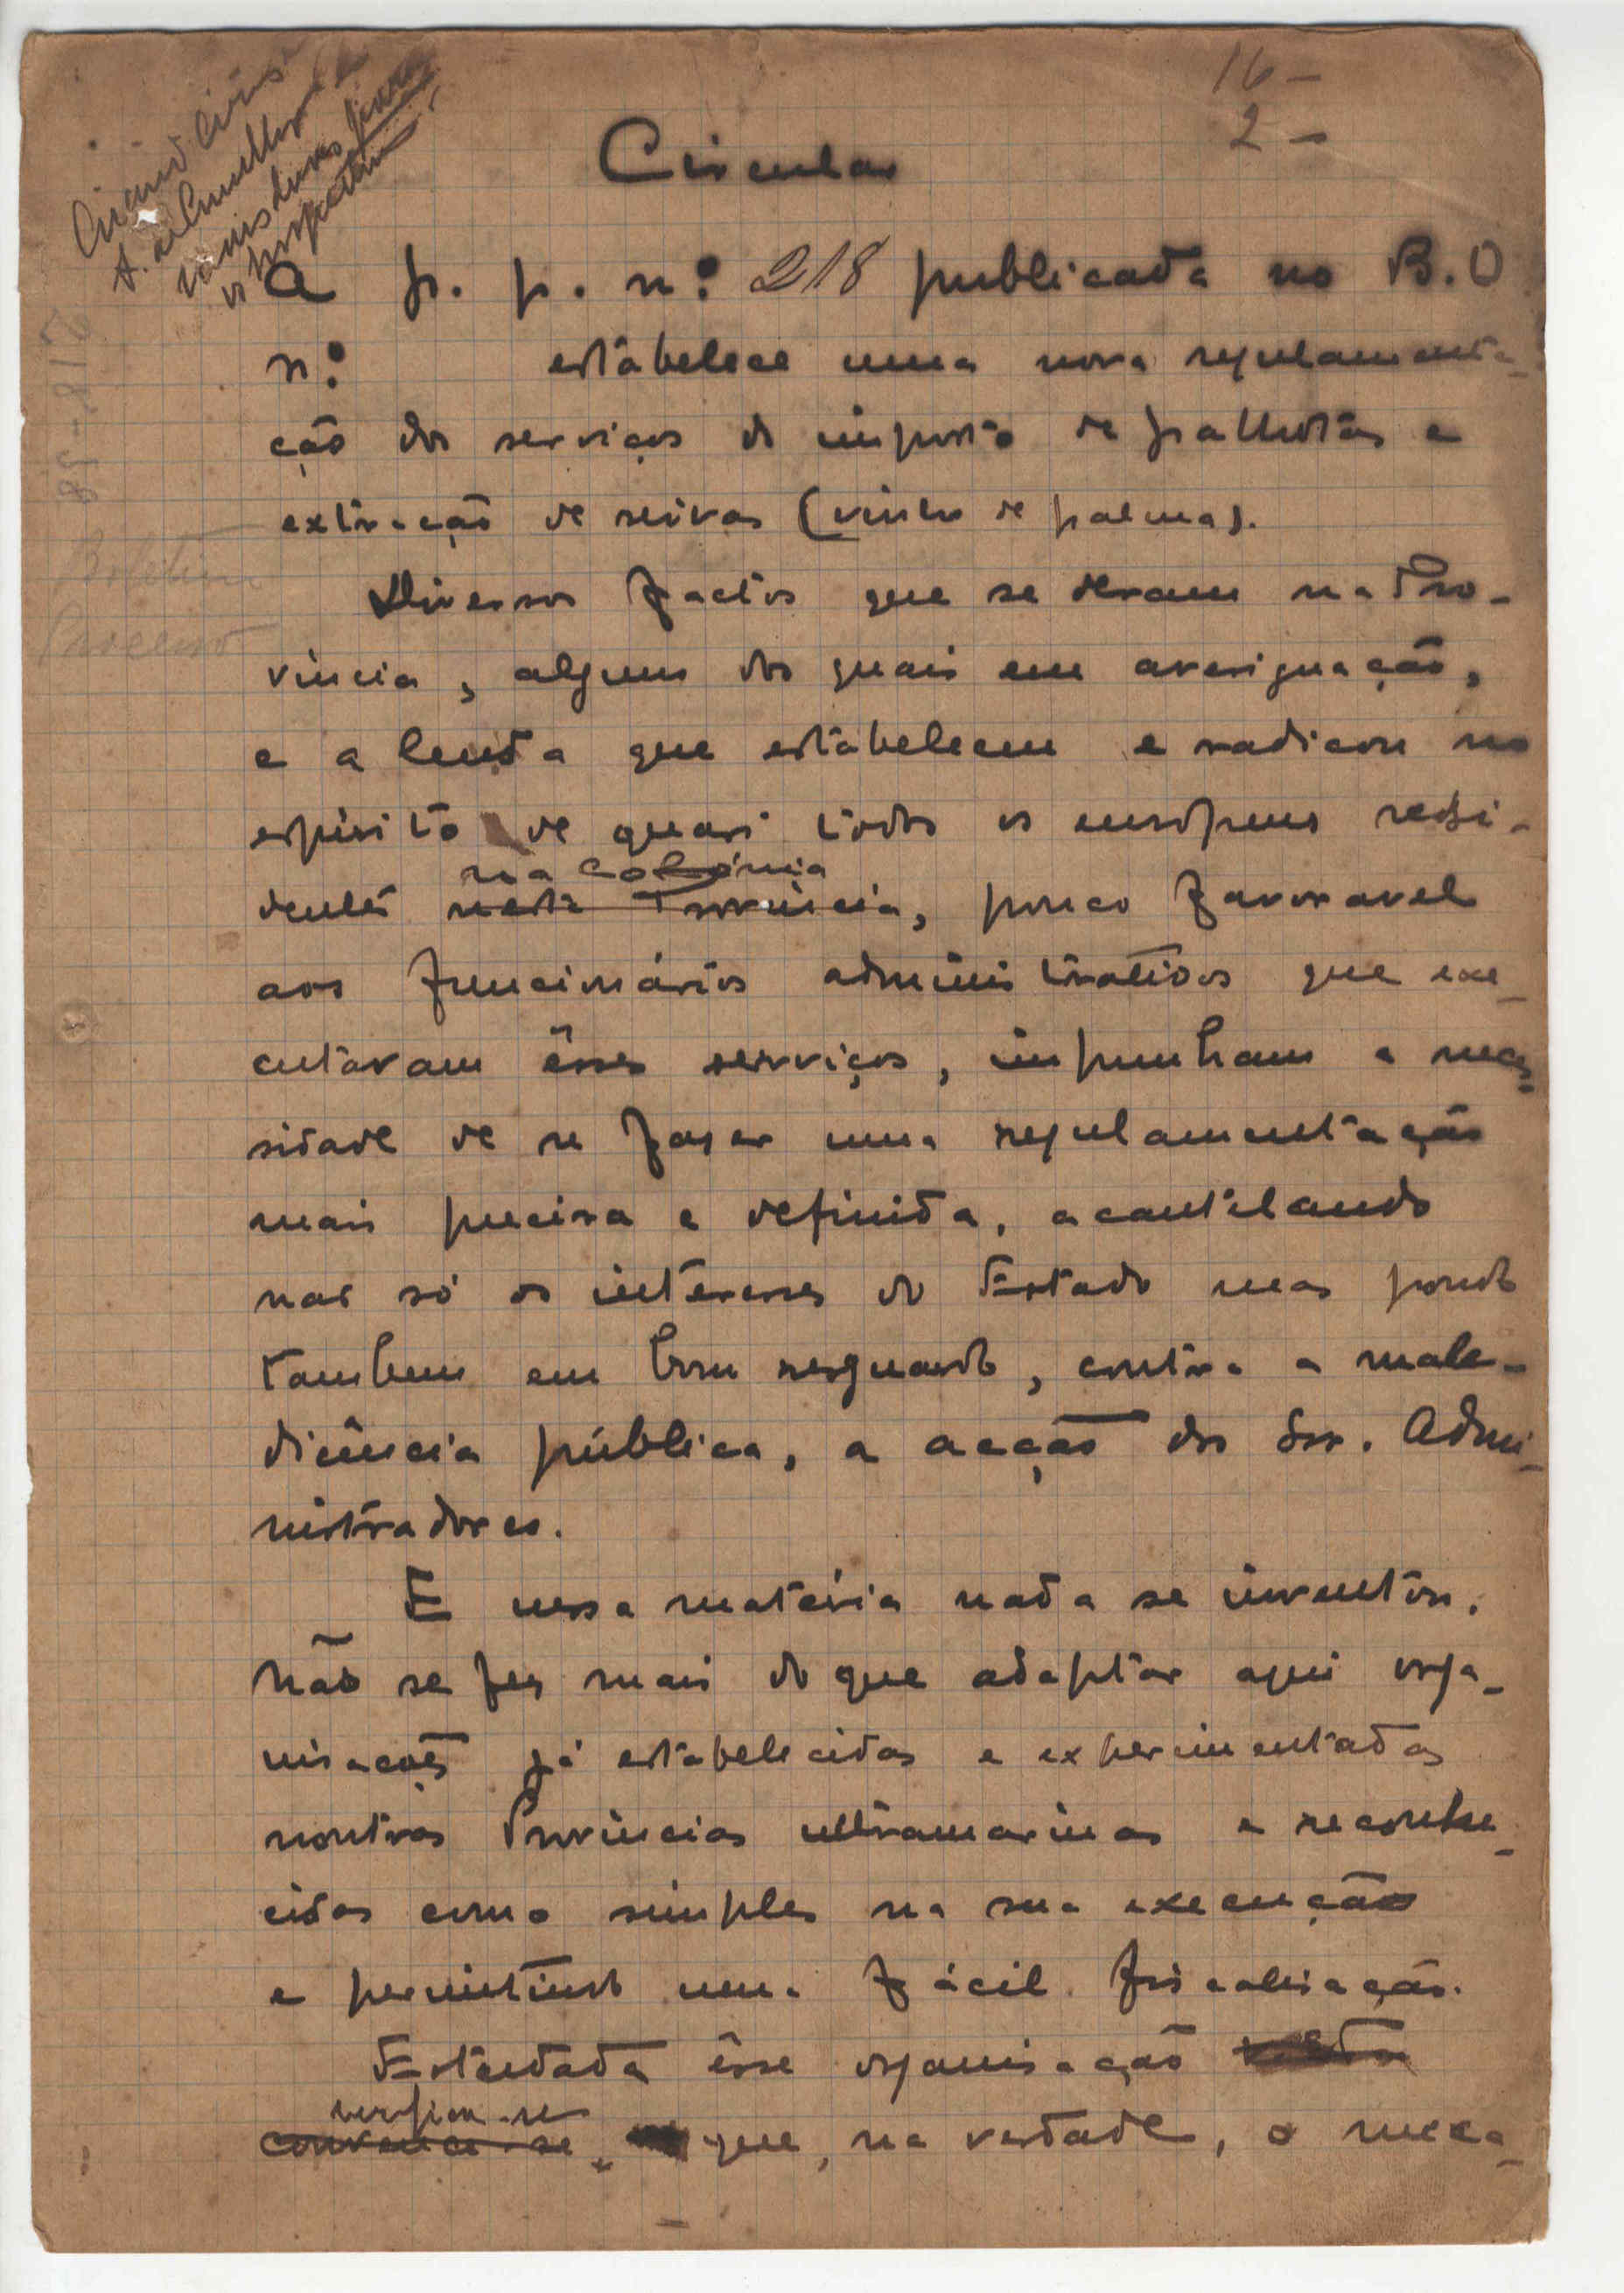 16 -
2 -
Circular
A p. p. n.º 218 publicada no B. O
n.º estabelece uma nova regulamenta-
ção dos serviços do imposto de palhotas e
extracção de seivas (vinho de palma).
Diversos factos que se deram na Pro-
vincia, alguns dos quais em averiguação,
e a lenda que estabeleceu e radicou no
espirito de quasi todos os europeus resi-
na colónia
dentes nesta Provincia, pouco favoravel
aos funcionários administrativos que exe-
cutavam êsses serviços, impunham a neces-
sidade de se fazer uma regulamentação
mais precisa e definida, acautelando
não só os interesses do Estado mas pondo
tambem em bom resguardo, contra a male-
dicência pública, a acção dos Snr. Admi-
nistradores.
E nessa matéria nada se inventou.
Não se fez mais do que adaptar aqui orga-
nisações já estabelecidas e experimentadas
noutras Provincias ultramarinas e reconhe-
cidas como simples na sua execução
e permitindo uma fácil fiscalisação.
Estudada êsse organisação
verificou-se
convence-se, que, na verdade, o meca-
218-38
Boletim